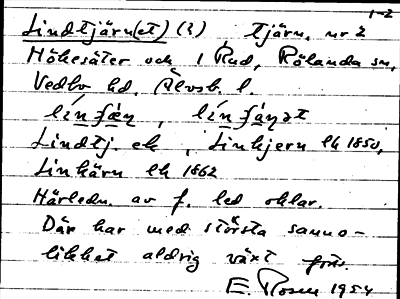 1-2
Lindtjärn(et) (2), tjärn, nr 2
Hökesäter och 1 Rud, Rölanda sn,
Vedbo hd, Älvsb. l.
Lindtj. ek, Linkjern lk 1850,
Linkärn lk 1862
Härledn. av f. led oklar.
Där har med största sanno-
likhet aldrig växt
E. Rosen 1954